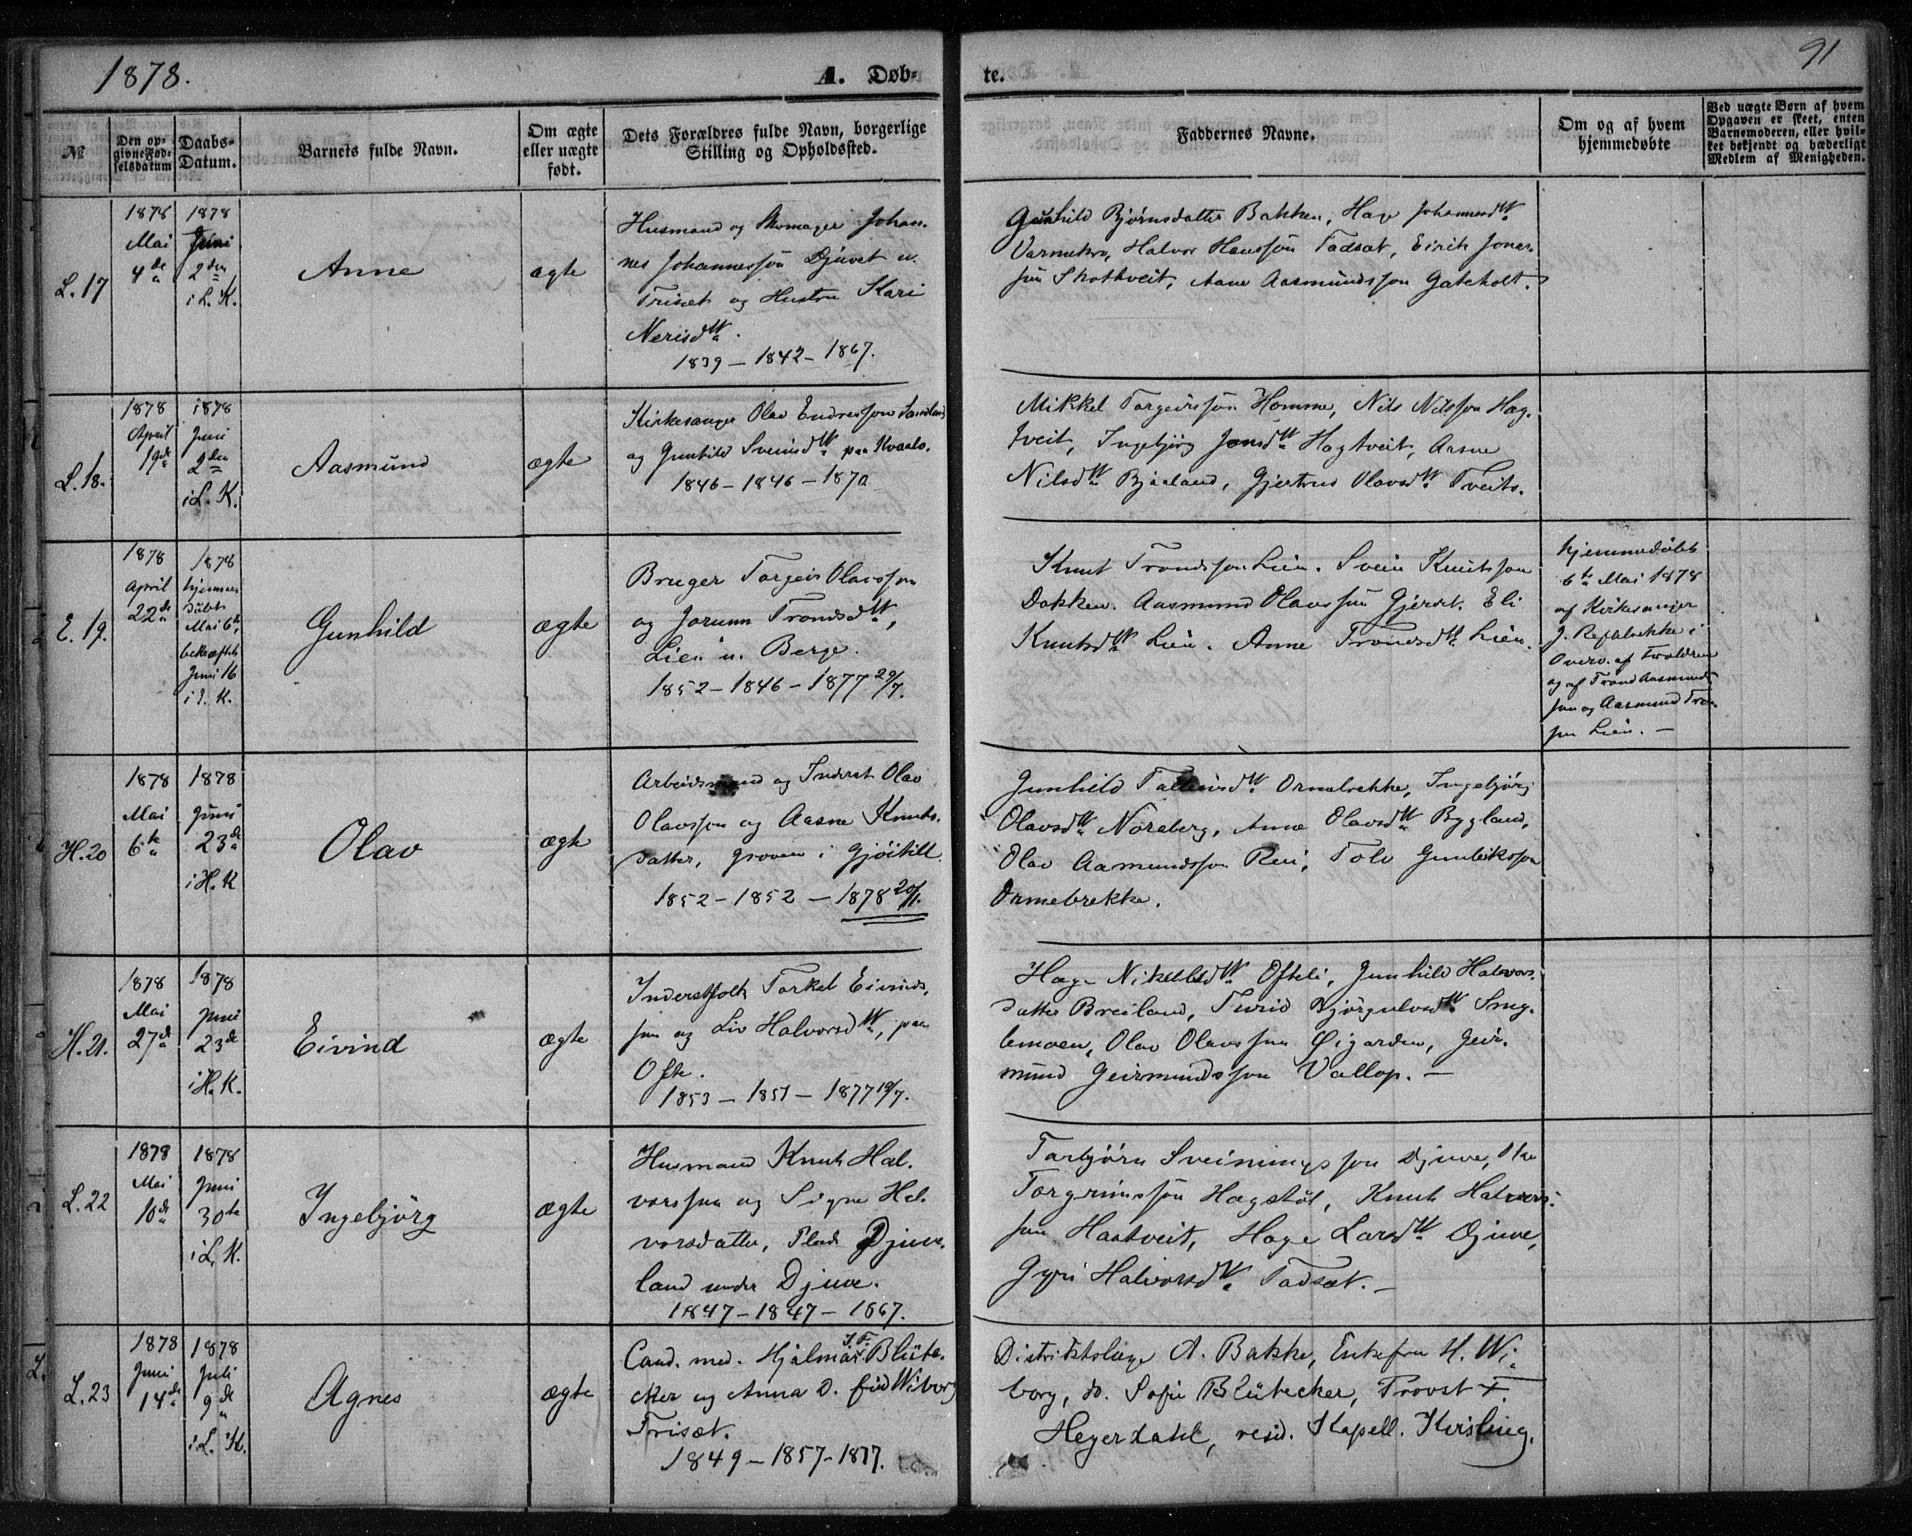 1878.
A. Døb-
te.
91
№
Den op-
givne Fød-
selsdatum
Daabs-
Datum.
Barnets fulde Navn.
Om ægte
eller uægte
født.
Dets Forældres fulde Navn, borgerlige
Stilling og Opholdssted.
Faddernes Navne.
Om og af hvem
hjemmedøbte
Ved uægte Børn af hvem
Opgaven er skeet, enten
Barnemoderen, eller hvil-
ket bekjendt og hæderligt
Medlem af Menigheden.
L. 17
1878
Mai
4de
1878
Juni
2den
i L. K.
Anne
ægte
Husmand og Skomager Johan-
nes Johannessøn Djuvet u.
Triset og Hustru Kari
Nerisdtr.
1839 - 1842 - 1867.
Gunhild Bjørnsdatter Bakken, Hage Johannesdtr
Halvor Hanssøn Tadsæt, Eirik Jonas-
søn Skothveit, Aane Aasmundssøn Gateholt.
L. 18.
1878
April
19de
1878
Juni
2den
i L. K.
Aasmund
ægte
Kirkesanger Olav Endressøn
og Gunhild Sveinsdtr paa Kvaalo.
1846 - 1846 - 1870
Mikkel Targeirssøn Homme, Nils Nilssøn Hag-
tveit, Ingebjørg Jonsdtr Hagtveit, Aasne
Nilsdtr Bjaaland, Gjertrud Olavsdtr Tveito.
E. 19.
1878
April
22de
1878
hjemme-
døbt
Mai 6te,
bekræftet
Juni 16
i E. K.
Gunhild
ægte
Bruger Targeir Olavssøn
og Jorunn Trondsdtr,
Lien u. Berge.
1852 - 1846 - 1877 29/7.
Knut Trondssøn Lien. Svein Knutssøn
Dokken. Aasmund Olavssøn Gjerdet. Eli
Knutsdtr Lien. Anne Trondsdtr Lien.
hjemmedøbt
6te Mai 1878
af Kirkesanger
J. i
Overv. af Forældrene
og af Trond Aasmunds-
søn og Aasmund Tronds-
søn Lien. -
H. 20
1878
Mai
6te
1878
Juni
23de
i H. K
Olav
ægte
Arbeidsmand og Inderst Olav
Olavssøn og Aasne Knuts-
datter, Groven i Gjøitill
1852 - 1852 - 1878 20/1.
Gunhild Talleivsdtr Ormebrekke, Ingebjørg
Olavsdtr Noreberg, Anne Olavsdtr Bygland,
Olav Aamundssøn Rui, Tolv Gunleikssøn
Ormebrekke.
H. 21.
1878
Mai
27de
1878
Juni
23de
i H. K.
Eivind
ægte
Inderstfolk Torkel Eivinds-
søn og Liv Halvorsdtr, paa
Ofte.
1853 - 1851 - 1877 19/7.
Hage Ofteli, Gunhild Halvors-
datter Breiland, Turid Bjørgulvsdtr Smøg-
lemoen, Olav Olavssøn Øigarden, Geir-
mund Geirmundssøn Vallop. -
L. 22
1878
Mai
10de
1878
Juni
30te
i L. K.
Ingebjörg
ægte
Husmand Knut Hal-
vorssøn og Signe Hal-
vorsdatter, Plads Djuve-
land under Djuve.
1847 - 1847 - 1867.
Tarbjørn Sveinungssøn Djuve, Ole
Torgrimssøn Hagstøl, Knut Halvors-
søn Haatveit, Hage Larsdtr Djuve,
Gyri Halvorsdtr Tadsæt. -
L. 23
1878
Juni
14de
1878
Juli
9de
i L. K.
Agnes
ægte
Cand. med. Hjalmar J. F. Blüte-
cher og Anna D. født Wiborg
Trisæt.
1849 - 1857 - 1877.
Distriktslæge A. Bakke, Enkefru H. Wi-
borg, do. Sofie Blütecher, Provst F.
Heyerdahl, resid. Kapell. Kisling.